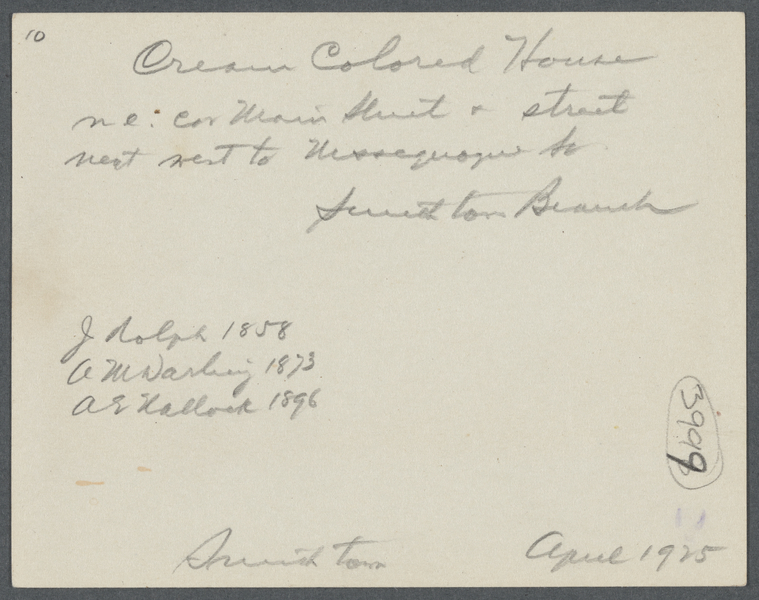 10
Cream Colored House
n e. cor Main Street & street
next west to Nissequogue Av
Smithtown Branch
J Rolph 1858
A M Darling 1873
A E Hallock 1896
3999
Smithtown
April 1925